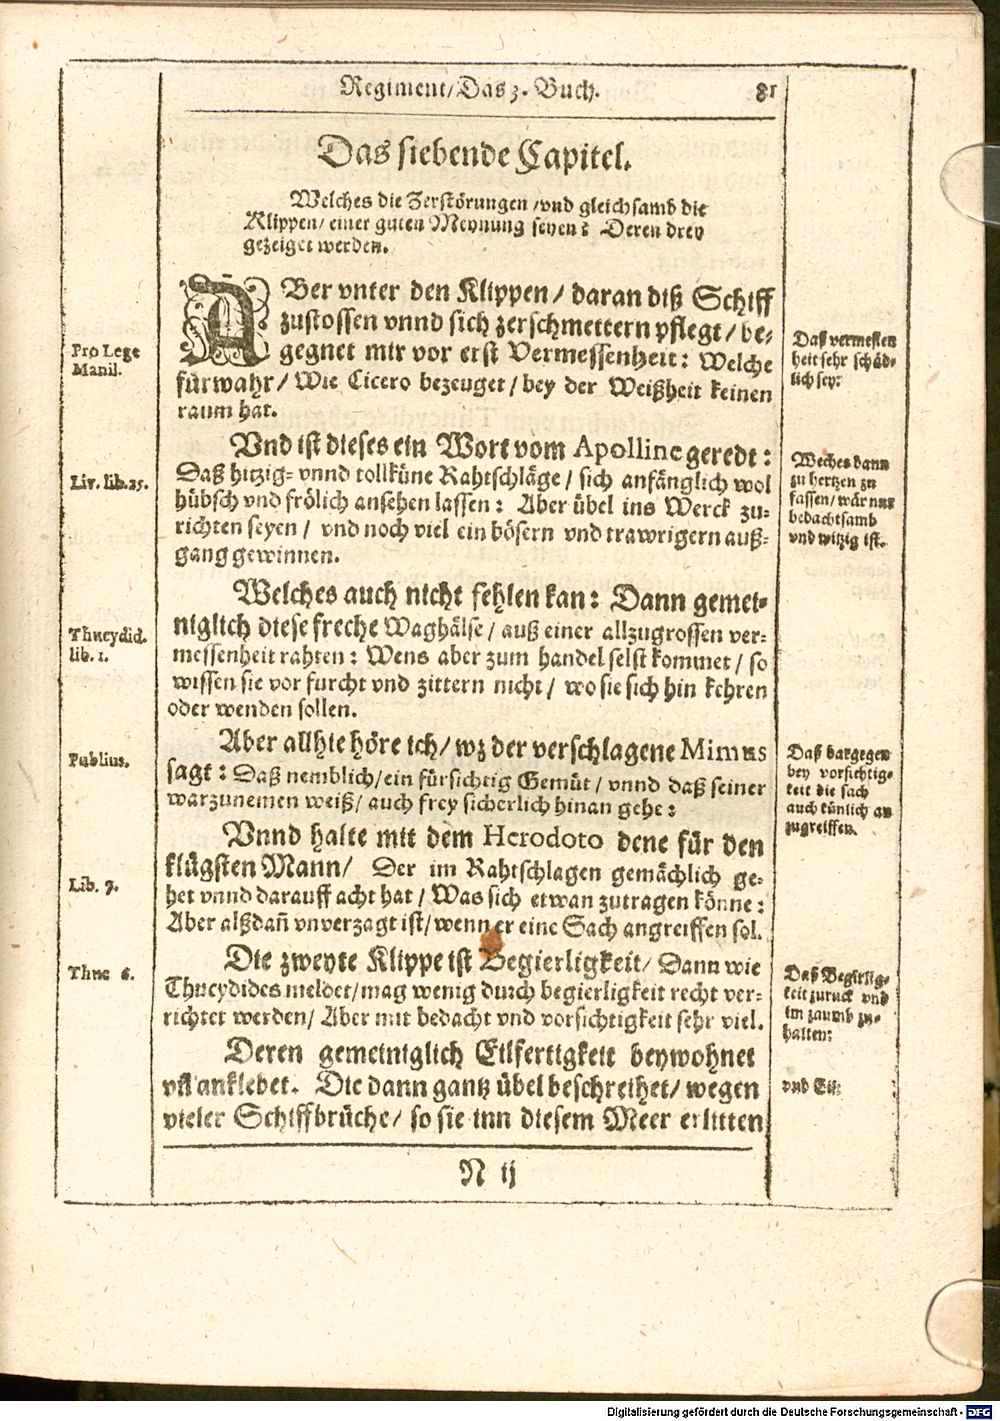 Regiment/ Das 3. Buch. 81
Das siebende Capitel.
Welches die Zerstörungen/ vnd gleichsamb die
Klippen/ einer guten Meynung seyen: Deren drey
gezeiget werden.
ABer vnter den Klippen/ daran diß Schiff
zustossen vnnd sich zerschmettern pflegt/ be-
gegnet mir vor erst Vermessenheit: Welche
fürwahr/ Wie Cicero bezeuget/ bey der Weißheit keinen
raum hat.
Pro Lege
Manil.
Daß vermessen
heit sehr schäd-
lich sey:
Vnd ist dieses ein Wort vom Apolline geredt:
Daß hitzig- vnnd tollküne Rahtschläge/ sich anfänglich wol
hübsch vnd frölich ansehen lassen: Aber übel ins Werck zu-
richten seyen/ vnd noch viel ein bösern vnd trawrigern auß-
gang gewinnen.
Liv. lib. 35.
Weches dann
zu hertzen zu
fassen/ wär nur
bedachtsamb
vnd witzig ist.
Welches auch nicht fehlen kan: Dann gemei-
niglich diese freche Waghälse/ auß einer allzugrossen ver-
messenheit rahten: Wens aber zum handel selst kommet/ so
wissen sie vor furcht vnd zittern nicht/ wo sie sich hin kehren
oder wenden sollen.
Thucydid.
lib. 1.
Aber allhie höre ich/ wz der verschlagene Mimus
sagt: Daß nemblich/ ein fürsichtig Gemüt/ vnnd daß seiner
warzunemen weiß/ auch frey sicherlich hinan gehe:
Publius.
Daß dargegen
bey vorsichtig-
keit die sach
auch künlich an
zugreiffen.
Vnnd halte mit dem Herodoto dene für den
klügsten Mann/ Der im Rahtschlagen gemächlich ge-
het vnnd darauff acht hat/ Was sich etwan zutragen könne:
Aber alßdañ vnverzagt ist/ wenn er eine Sach angreiffen sol.
Lib. 7.
Die zweyte Klippe ist Begierligkeit/ Dann wie
Thucydides meldet/ mag wenig durch begierligkeit recht ver-
richtet werden/ Aber mit bedacht vnd vorsichtigkeit sehr viel.
Thuc 6.
Daß Begirlig-
keit zuruck vnd
im zaumb zu-
halten:
Deren gemeiniglich Eilfertigkeit beywohnet
vñ anklebet. Die dann gantz übel beschreihet/ wegen
vieler Schiffbrüche/ so sie inn diesem Meer erlitten
vnd Eil:
N ij
Digitalisierung gefördert durch die Deutsche Forschungsgemeinschaft - DFG